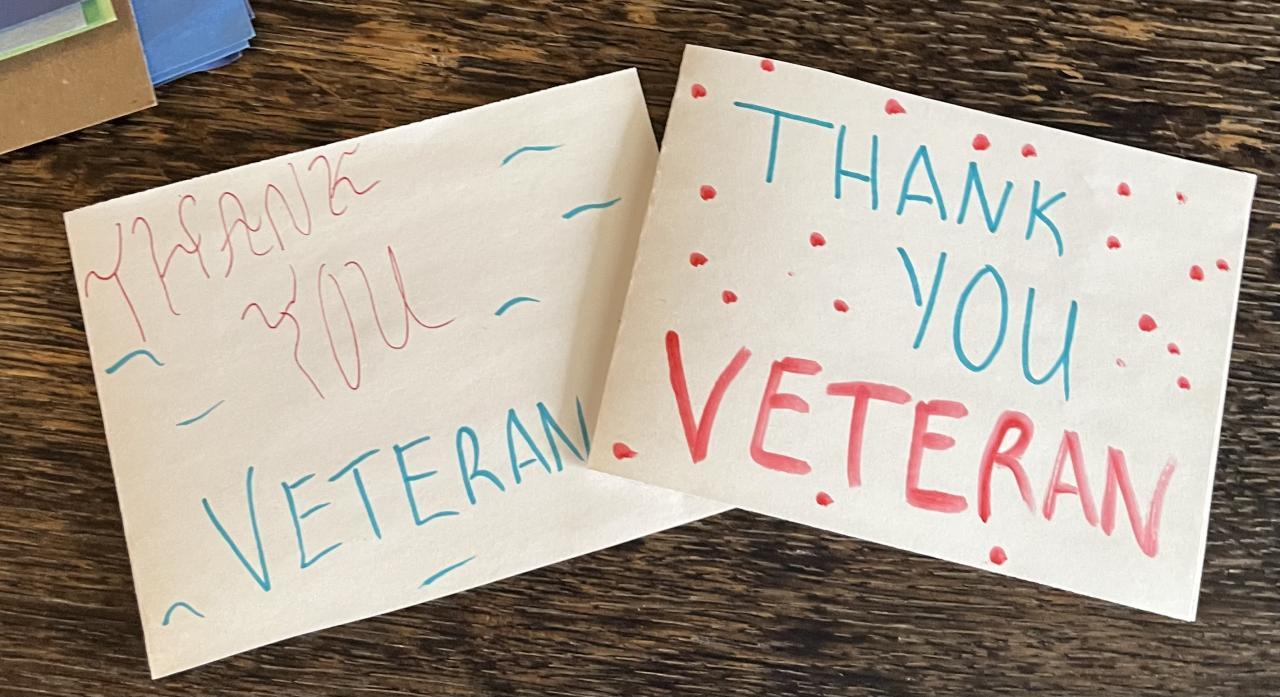 THANK
YOU
VETERAN
THANK
YOU
VETERAN